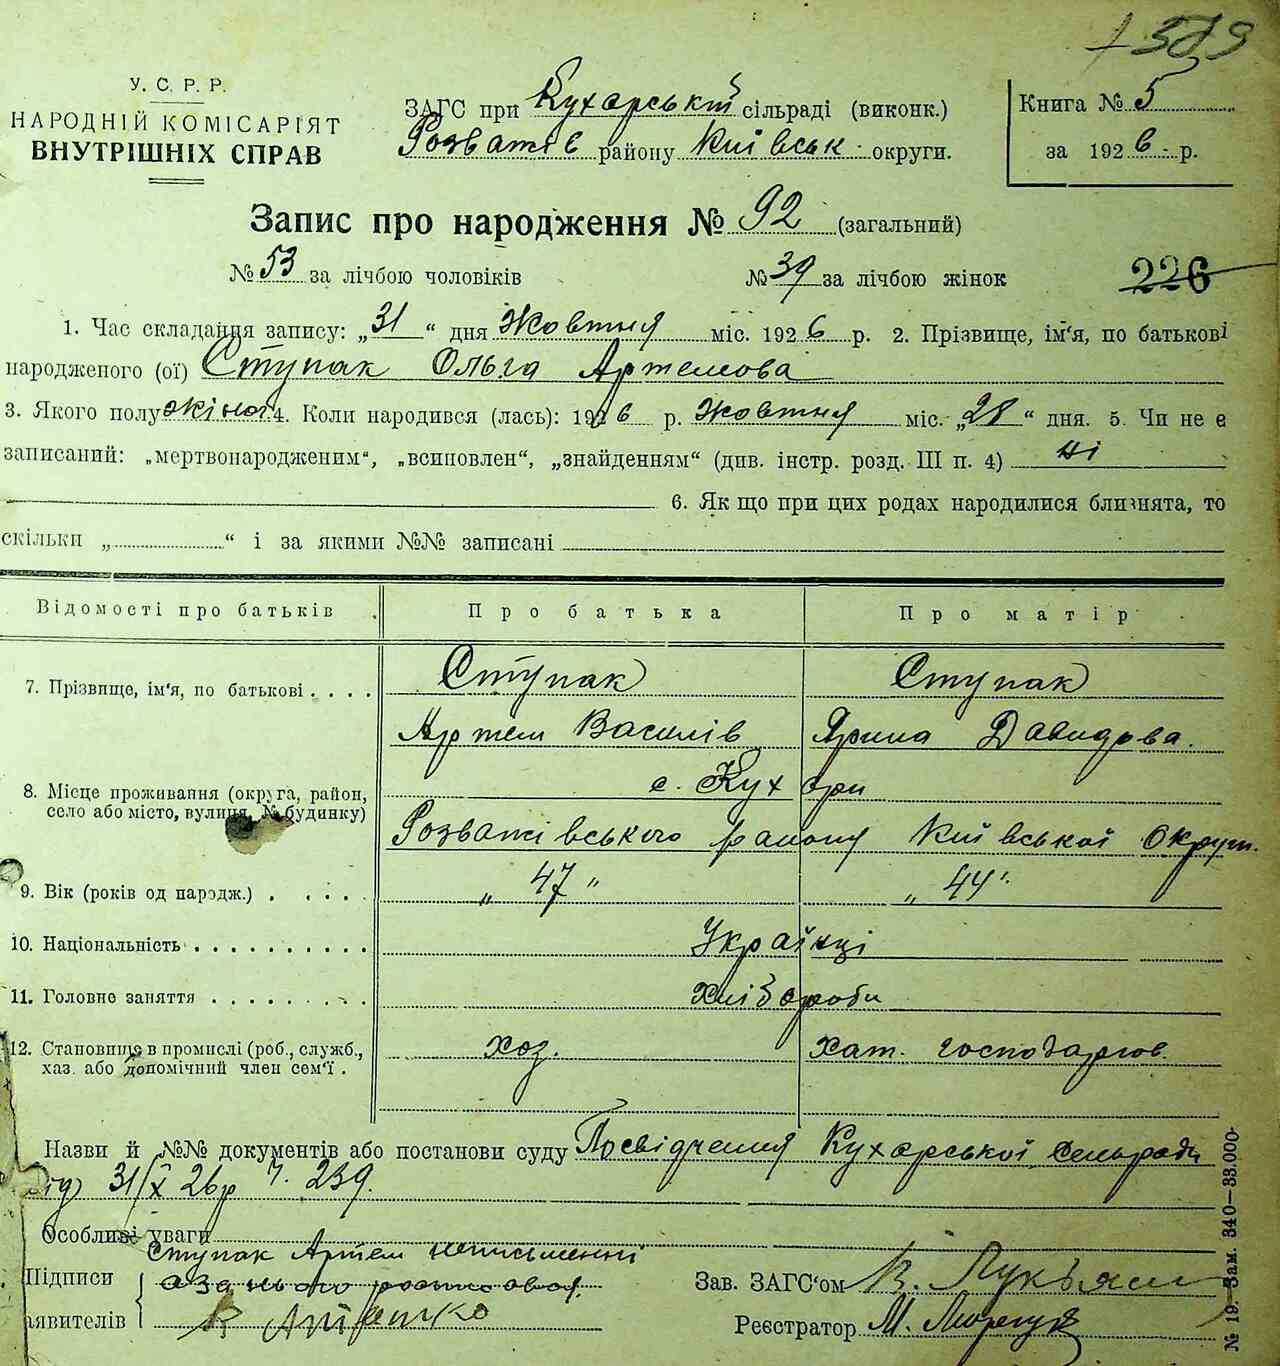 У. С. Р. Р.
НАРОДНІЙ КОМІСАРІЯТ
ВНУТРІШНІХ СПРАВ
ЗАГС при Кухарській сільраді (виконк.)
Розважів району Київськ. округи.
Книга № 5
за 1926 р.
Запис про народження № 92 (загальний)
№ 53 за лічбою чоловіків № 39 за лічбою жінок
226
1. Час складання запису: „31“ дня Жовтня міс. 1926 р. 2. Прізвище, ім‘я, по батькові
народженого (ої) Ступак Ольга Артемова
3. Якого полу жіноч. 4. Коли народився (лась): 1926 р. Жовтня міс. „28“ дня. 5. Чи не є
записаний: „мертвонародженим“, „всиповлен“, „знайденням“ (див. інстр. розд. III п. 4) ні
6. Як що при цих родах народилися близнята, то
скільки „ “ і за якими №№ записані
Відомості про батьків Про батька Про матір
7. Прізвище, ім‘я, по батькові Ступак Ступак
Артем Василів Ярина Давидова.
8. Місце проживання (округа, район,
село або місто, вулиця, № будинку) с. Кухари
Розважівського району Київської Округи.
9. Вік (років од народж.) „47“ „44“
10. Національність Українці
11. Головне заняття Хлібороби
12. Становище в промислі (роб., служб.,
хаз. або допомічний член сем‘ї . хоз. хат. господаров.
Назви й №№ документів або постанови суду Посвідчення Кухарської Сельради
від 31/X 26 р ч. 239.
Особливі уваги
Ступак Артем неписьменні
Підписи
а за нього росписався
заявителів
Зав. ЗАГС‘ом В. Лукьян
Реєстратор М.
№ 19—Зам. 340—33.000